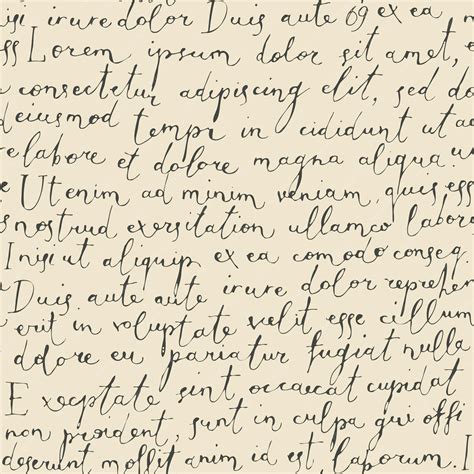 isi irure dolor Duis aute 69 ex ea
Lorem ipsum dolor sit amet,
consectetur adipiscing elit, sed do
eiusmod tempr in cididunt ut ad
elabore et dolore magna aliqua
Ut enim ad minim veniam, quis ess
nostrud exersitation ullamco labora
I nisi ut aliquip ex ea comodo conseq
Duis aute aute irure dolor reprehen
erit in voluptate vselit esse cillum
ddore eu pariatur fugiat nulle
Excptate sint occaecat cupidat
non proident, sunt in culpa qui offi
deserunt mollit anim id est, laborum, I